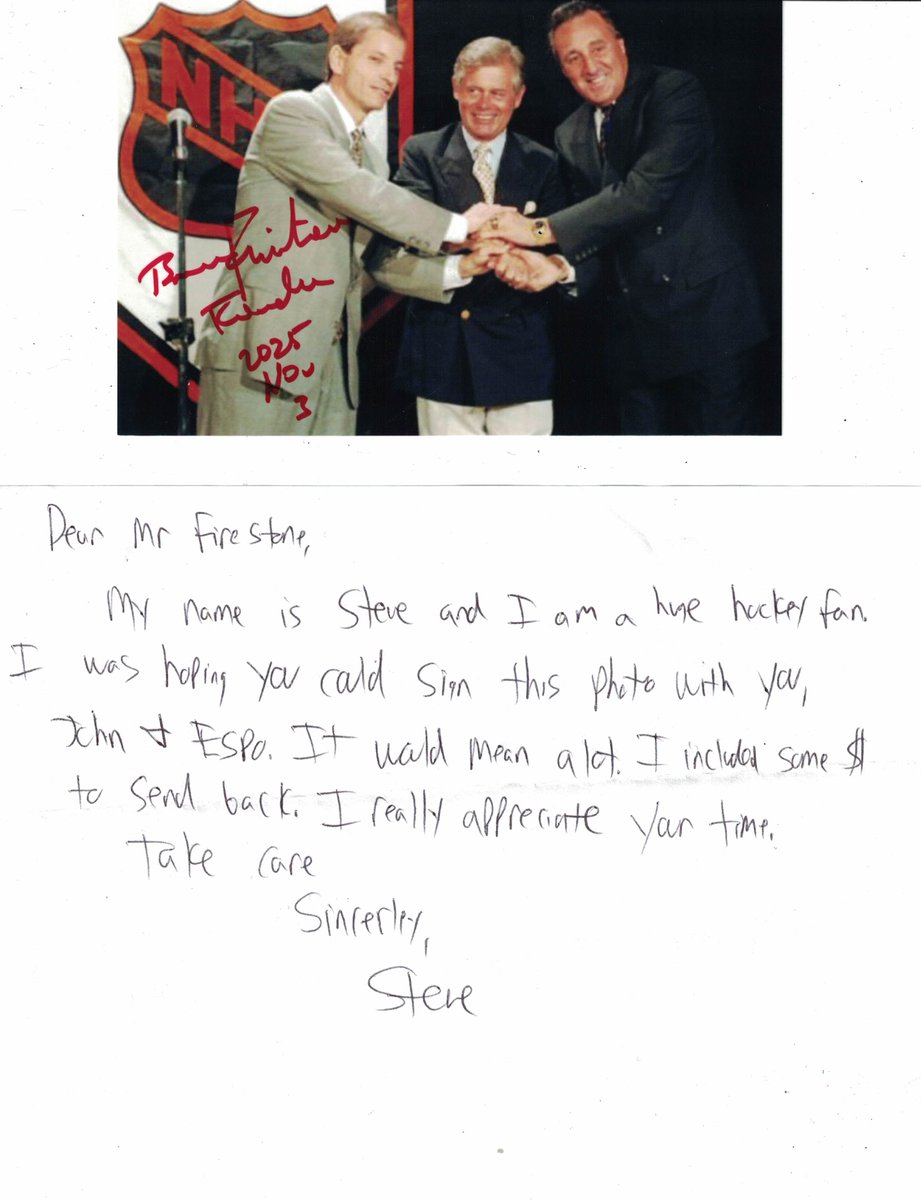 NH
Bruce Firestone
Kinsha
2025
Nov
3
Dear Mr Firestone,
My name is Steve and I am a huge hockey fan.
I was hoping you could sign this photo with you,
John & Espo. It would mean a lot. I included some $
to send back. I really appreciate your time.
Take care
Sincerley,
Steve